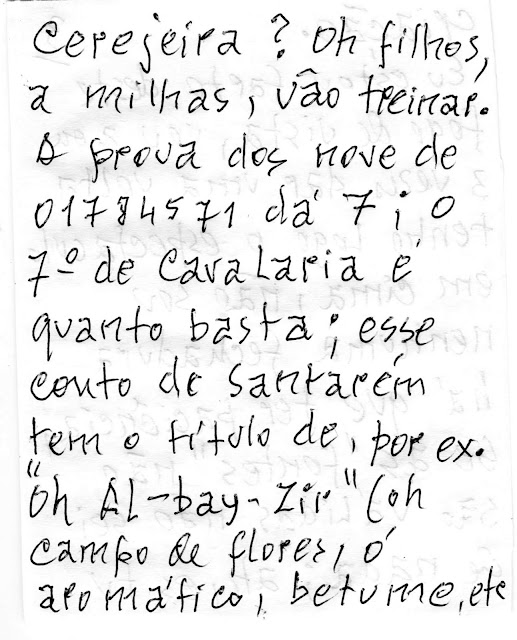 Cerejeira ? Oh filhos,
a milhas, vão treinar.
A prova dos nove de
01784571 dá 7 ; o
7º de cavalaria é
quanto basta ; esse
conto de Santarém
tem o título de, por ex.
"Oh AL-bay-zir" (oh
campo de flores, ó
aromático, betume, etc